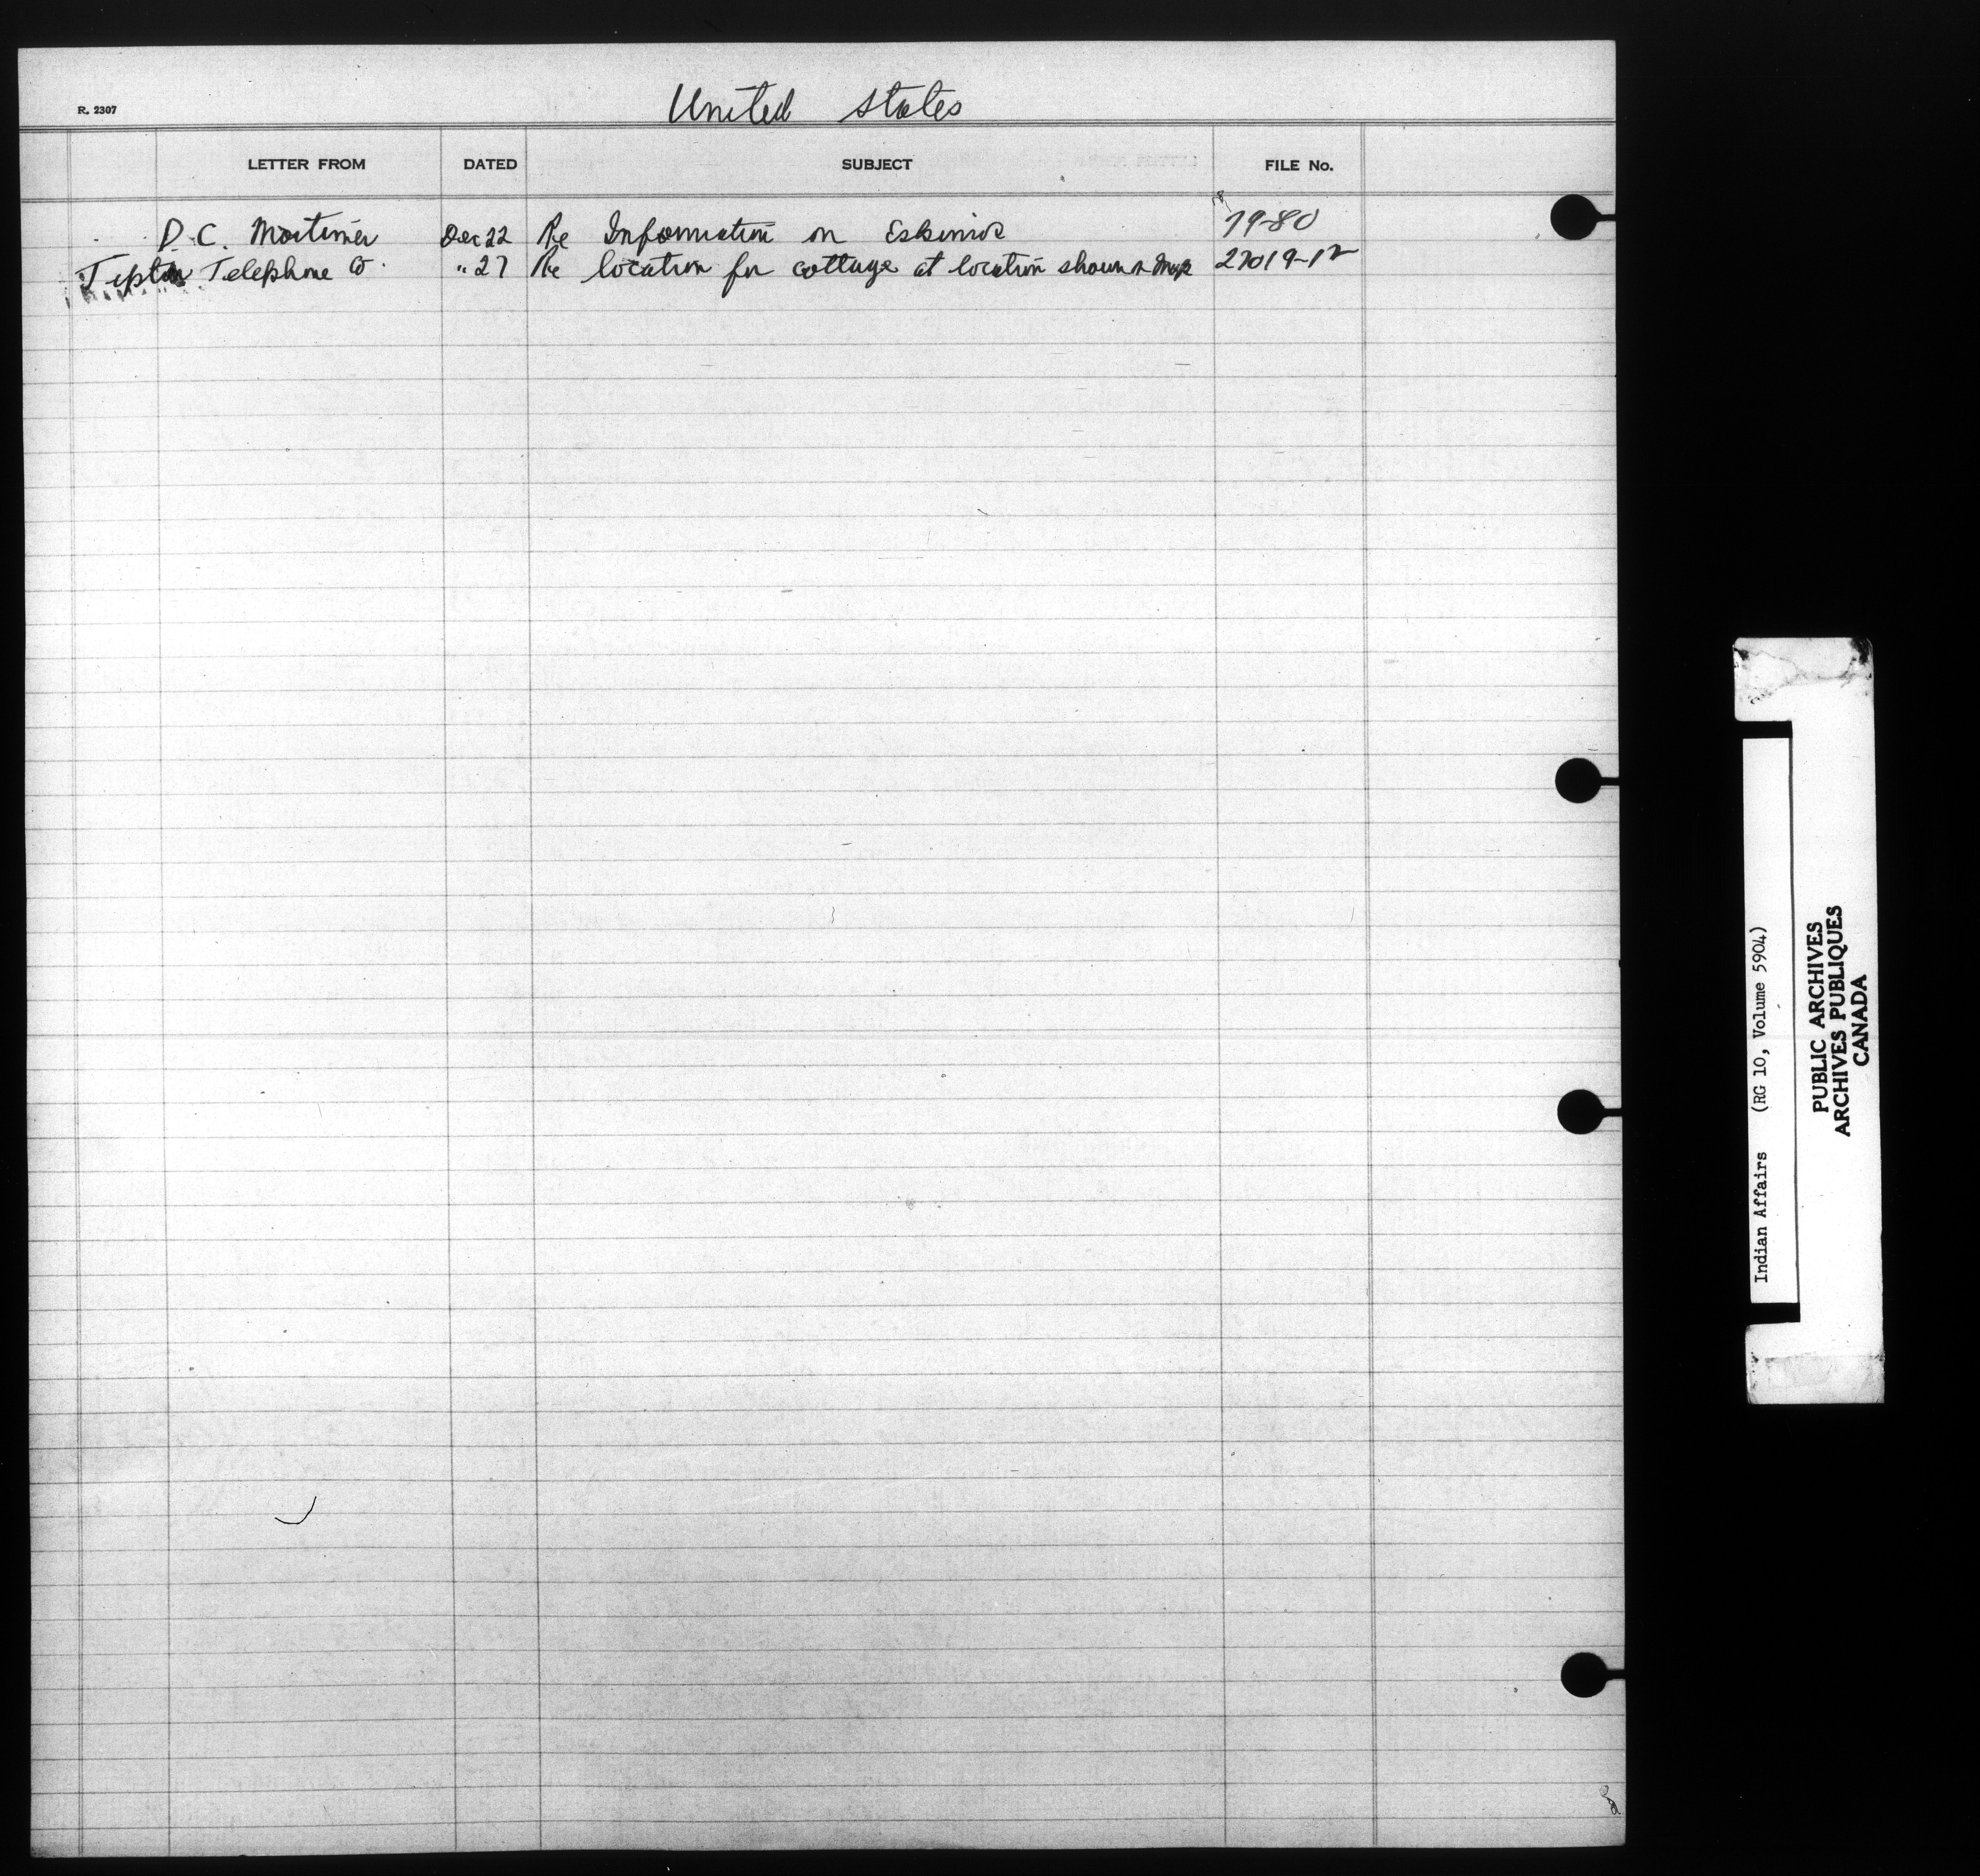 R. 2307
United States
LETTER FROM DATED SUBJECT FILE No.
D. C. Mortimer Dec 22 Re Information on Eskimos 79-80
Tipton Telephone Co. " 27 Re location for cottage at location shown on Map 27019-12
Indian Affairs (RG 10, Volume 5904)
PUBLIC ARCHIVES
ARCHIVES PUBLIQUES
CANADA